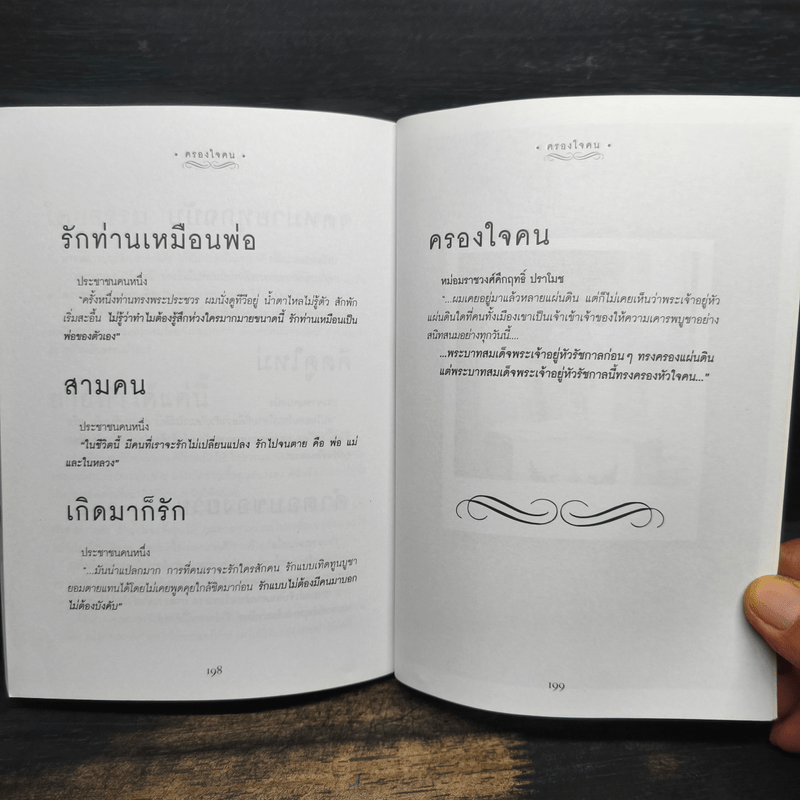 • ครองใจคน •
รักท่านเหมือนพ่อ
ประชาชนคนหนึ่ง
“ครั้งหนึ่งท่านทรงพระประชวร ผมนั่งดูทีวีอยู่ น้ำตาไหลไม่รู้ตัว สักพัก
เริ่มสะอื้น ไม่รู้ว่าทำไมต้องรู้สึกห่วงใครมากมายขนาดนี้ รักท่านเหมือนเป็น
พ่อของตัวเอง”
สามคน
ประชาชนคนหนึ่ง
“ในชีวิตนี้ มีคนที่เราจะรักไม่เปลี่ยนแปลง รักไปจนตาย คือ พ่อ แม่
และในหลวง”
เกิดมาก็รัก
ประชาชนคนหนึ่ง
“...มันน่าแปลกมาก การที่คนเราจะรักใครสักคน รักแบบเทิดทูนบูชา
ยอมตายแทนได้โดยไม่เคยพูดคุยใกล้ชิดมาก่อน รักแบบไม่ต้องมีคนมาบอก
ไม่ต้องบังคับ”
198
• ครองใจคน •
ครองใจคน
หม่อมราชวงศ์คึกฤทธิ์ ปราโมช
“...ผมเคยอยู่มาแล้วหลายแผ่นดิน แต่ก็ไม่เคยเห็นว่าพระเจ้าอยู่หัว
แผ่นดินใดที่คนทั้งเมืองเขาเป็นเจ้าเข้าเจ้าของให้ความเคารพบูชาอย่าง
สนิทสนมอย่างทุกวันนี้....
...พระบาทสมเด็จพระเจ้าอยู่หัวรัชกาลก่อนๆ ทรงครองแผ่นดิน
แต่พระบาทสมเด็จพระเจ้าอยู่หัวรัชกาลนี้ทรงครองหัวใจคน...”
199